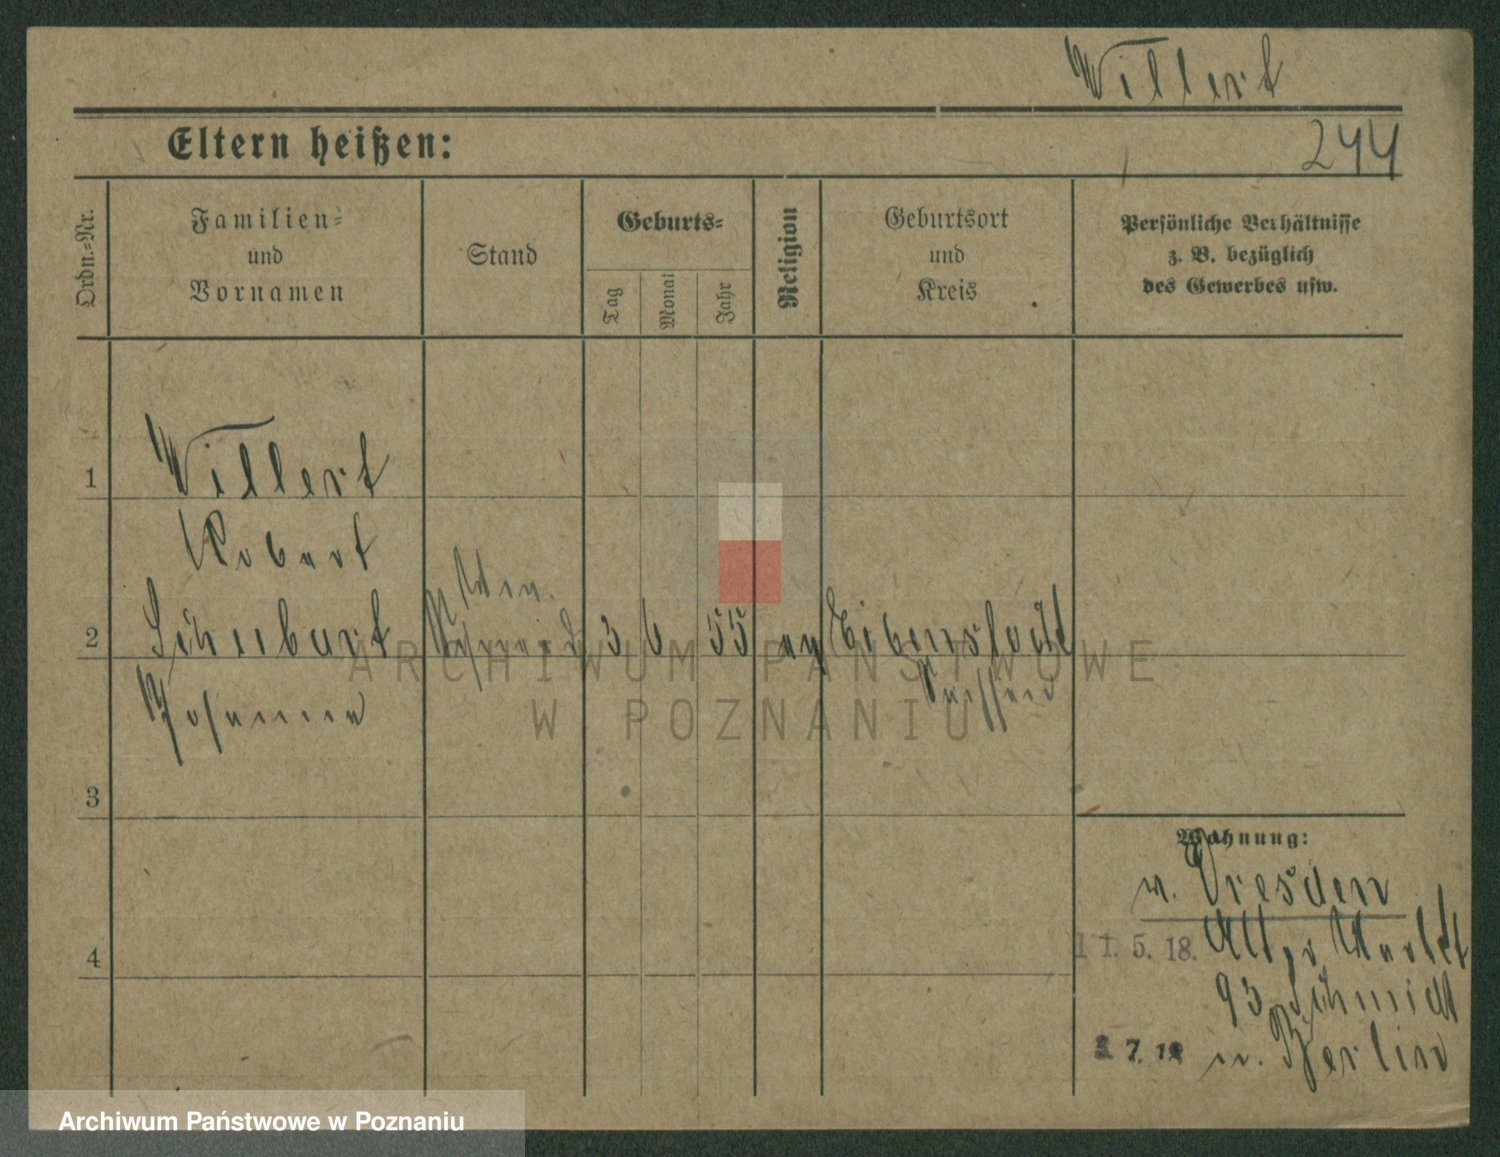 Willert
Eltern heißen:
244
Ordn.-Nr.
Familien-
und
Vornamen
Stand
Geburts-
Tag
Monat
Jahr
Religion
Geburtsort
und
Kreis
Persönliche Verhältnisse
z. B. bezüglich
des Gewerbes usw.
1
Willert
Robert
2
Scheibart
3 6 55
ev
Eibenstock
Sachsen
3
Wohnung:
n. Dresden
11. 5. 18. Alter Markt
93 Schmidt
7. 18 n. Berlin
4
ARCHIWUM PAŃSTWOWE
W POZNANIU
Archiwum Państwowe w Poznaniu